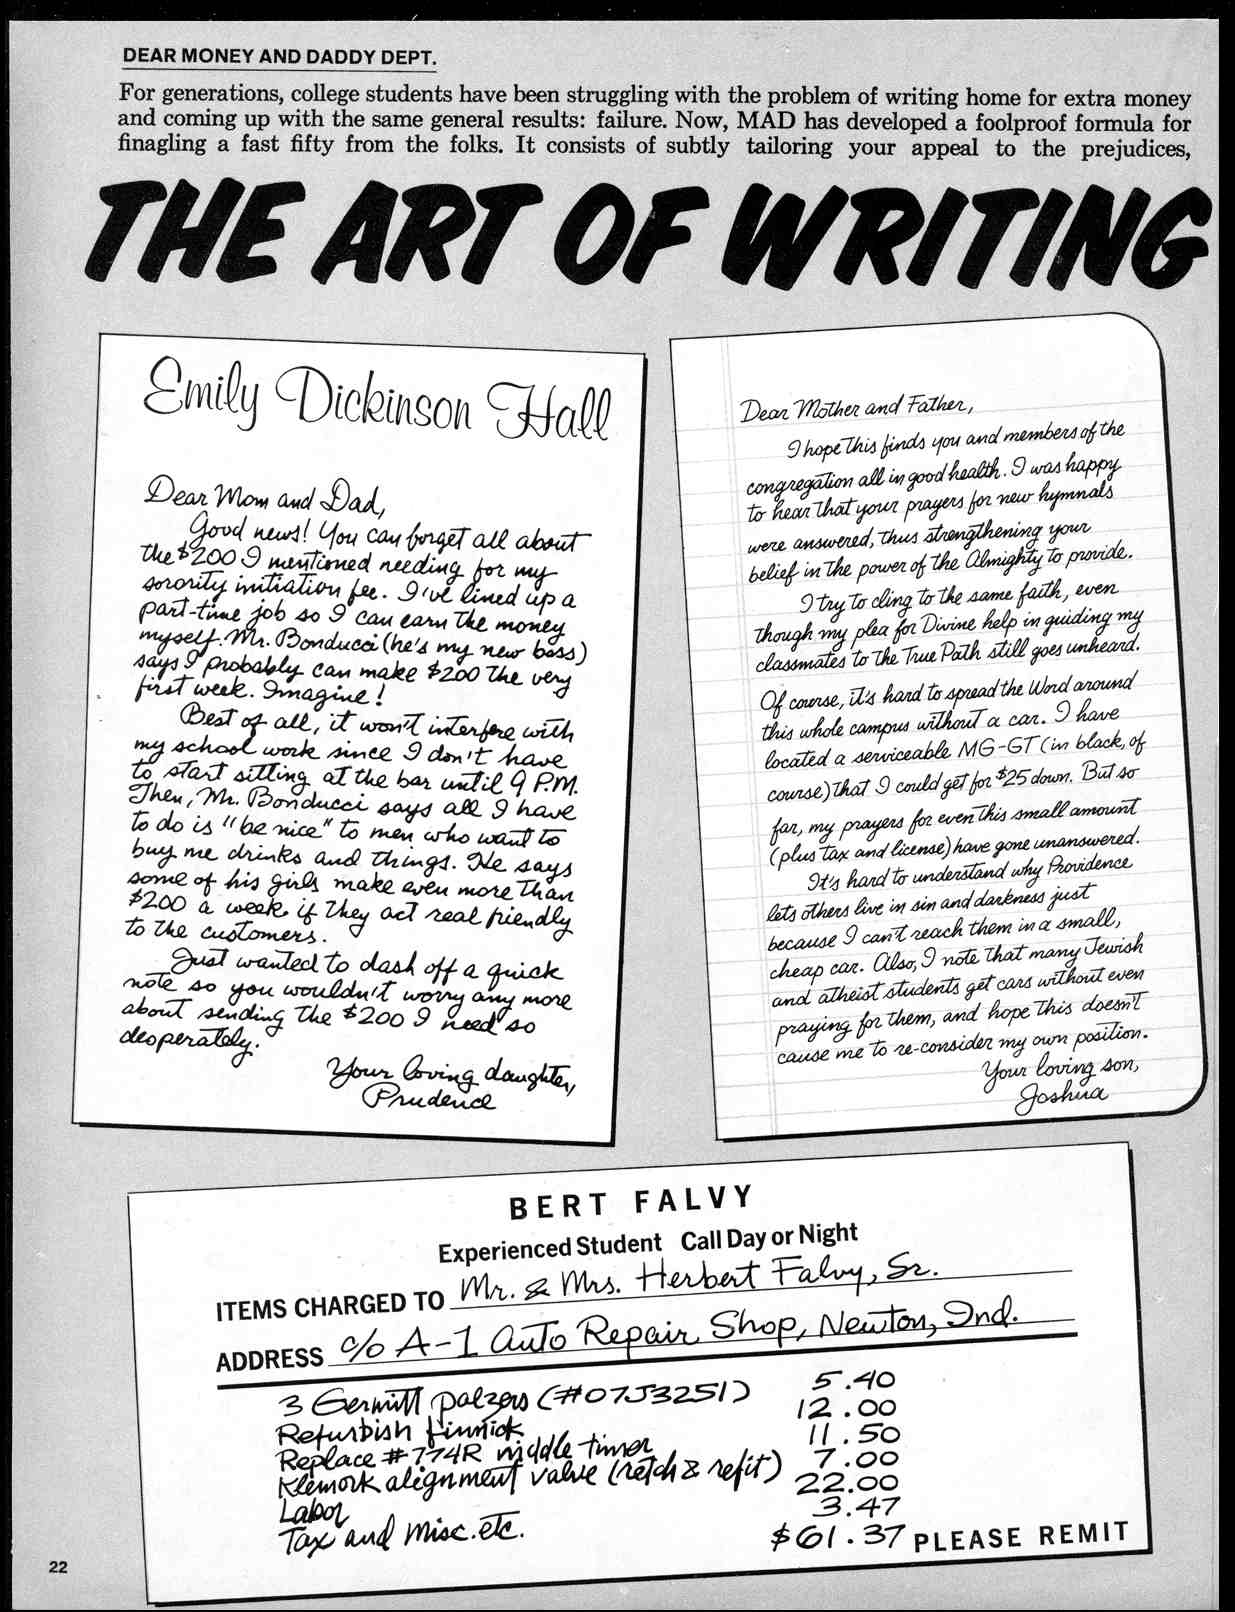 DEAR MONEY AND DADDY DEPT.
For generations, college students have been struggling with the problem of writing home for extra money
and coming up with the same general results: failure. Now, MAD has developed a foolproof formula for
finagling a fast fifty from the folks. It consists of subtly tailoring your appeal to the prejudices,
THE ART OF WRITING
Emily Dickinson Hall
Dear Mom and Dad,
Good news! You can forget all about
the $200 I mentioned needing for my
sorority initiation fee. I've lined up a
part-time job so I can earn the money
myself. Mr. Bonducci (he's my new boss)
says I probably can make $200 the very
first week. Imagine!
Best of all, it won't interfere with
my school work since I don't have
to start sitting at the bar until 9 P.M.
Then, Mr. Bonducci says all I have
to do is "be nice" to men who want to
buy me drinks and things. He says
some of his girls make even more than
$200 a week if they act real friendly
to the customers.
Just wanted to dash off a quick
note so you wouldn't worry any more
about sending the $200 I need so
desperately.
Your loving daughter,
Prudence
Dear Mother and Father,
I hope this finds you and members of the
congregation all in good health. I was happy
to hear that your prayers for new hymnals
were answered, thus strengthening your
belief in the power of the Almighty to provide.
I try to cling to the same faith, even
though my plea for Divine help in guiding my
classmates to the True Path still goes unheard.
Of course, it's hard to spread the Word around
this whole campus without a car. I have
located a serviceable MG-GT (in black, of
course) that I could get for $25 down. But so
far, my prayers for even this small amount
(plus tax and license) have gone unanswered.
It's hard to understand why Providence
lets others live in sin and darkness just
because I can't reach them in a small,
cheap car. Also, I note that many Jewish
and atheist students get cars without even
praying for them, and hope this doesn't
cause me to re-consider my own position.
Your loving son,
Joshua
BERT FALVY
Experienced Student Call Day or Night
ITEMS CHARGED TO Mr. & Mrs. Herbert Falvy, Sr.
ADDRESS c/o A-1 Auto Repair Shop, Newton, Ind.
3 Germitt palzers (#07J3251) 5.40
Refurbish finnick 12.00
Replace #774R middle timer 11.50
Klemork alignment valve (retch & refit) 7.00
Labor 22.00
Tax and misc. etc. 3.47
$61.37 PLEASE REMIT
22